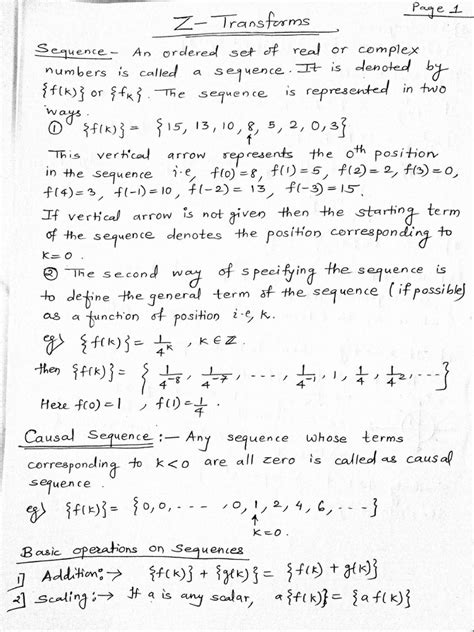 Page 1
Z-Transforms
Sequence - An ordered set of real or complex
numbers is called a sequence. It is denoted by
{f(k)} or {fk}. The sequence is represented in two
ways.
① {f(k)} = {15, 13, 10, 8, 5, 2, 0, 3}
↑
This vertical arrow represents the 0th position
in the sequence i.e, f(0)=8, f(1)=5, f(2)=2, f(3)=0,
f(4)=3, f(-1)=10, f(-2)=13, f(-3)=15.
If vertical arrow is not given then the starting term
of the sequence denotes the position corresponding to
k=0.
② The second way of specifying the sequence is
to define the general term of the sequence (if possible)
as a function of position i.e, k.
eg) {f(k)} = 1/4^k , k∈Z.
then {f(k)} = { 1/4^-8, 1/4^-7, ---, 1/4^-1, 1, 1/4, 1/4^2, --- }
Here f(0)=1 , f(1)=1/4.
Causal Sequence :- Any sequence whose terms
corresponding to k<0 are all zero is called as causal
sequence.
eg) {f(k)} = {0,0, --- ,0, 1, 2, 4, 6, ---}
↑
k=0.
Basic operations on Sequences
1] Addition:→ {f(k)} + {g(k)} = {f(k) + g(k)}
2] Scaling:→ If a is any scalar, a{f(k)} = {a f(k)}